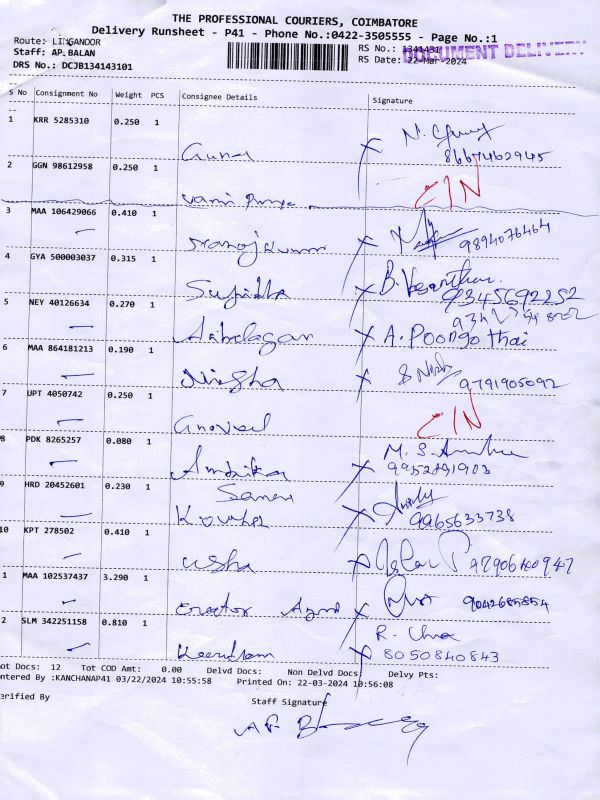 THE PROFESSIONAL COURIERS, COIMBATORE
Delivery Runsheet - P41 - Phone No.:0422-3505555 - Page No.:1
Route: LINGANOOR
Staff: AP.BALAN
DRS No.: DCJB134143101
RS No.: 1341431
RS Date: 22-Mar-2024
DOCUMENT DELIVERY
S No Consignment No Weight PCS Consignee Details Signature
1 KRR 5285310 0.250 1
Guna
8667462945
2 GGN 98612958 0.250 1
CIN
3 MAA 106429066 0.410 1
Manojkumar 9894076464
4 GYA 500003037 0.315 1
Sujritha B. Vasantha
9345692252
5 NEY 40126634 0.270 1
Anbalagan A. Poongothai
6 MAA 864181213 0.190 1
Nirsha 9791905092
7 UPT 4050742 0.250 1
CIN
8 PDK 8265257 0.080 1
Ambika 9952891903
9 HRD 20452601 0.230 1
9965633738
10 KPT 278502 0.410 1
Usha
1 MAA 102537437 3.290 1
Creator 9042685854
2 SLM 342251158 0.810 1
R. Uma
8050840843
ot Docs: 12 Tot COD Amt: 0.00 Delvd Docs: Non Delvd Docs: Delvy Pts:
ntered By :KANCHANAP41 03/22/2024 10:55:58 Printed On: 22-03-2024 10:56:08
erified By Staff Signature